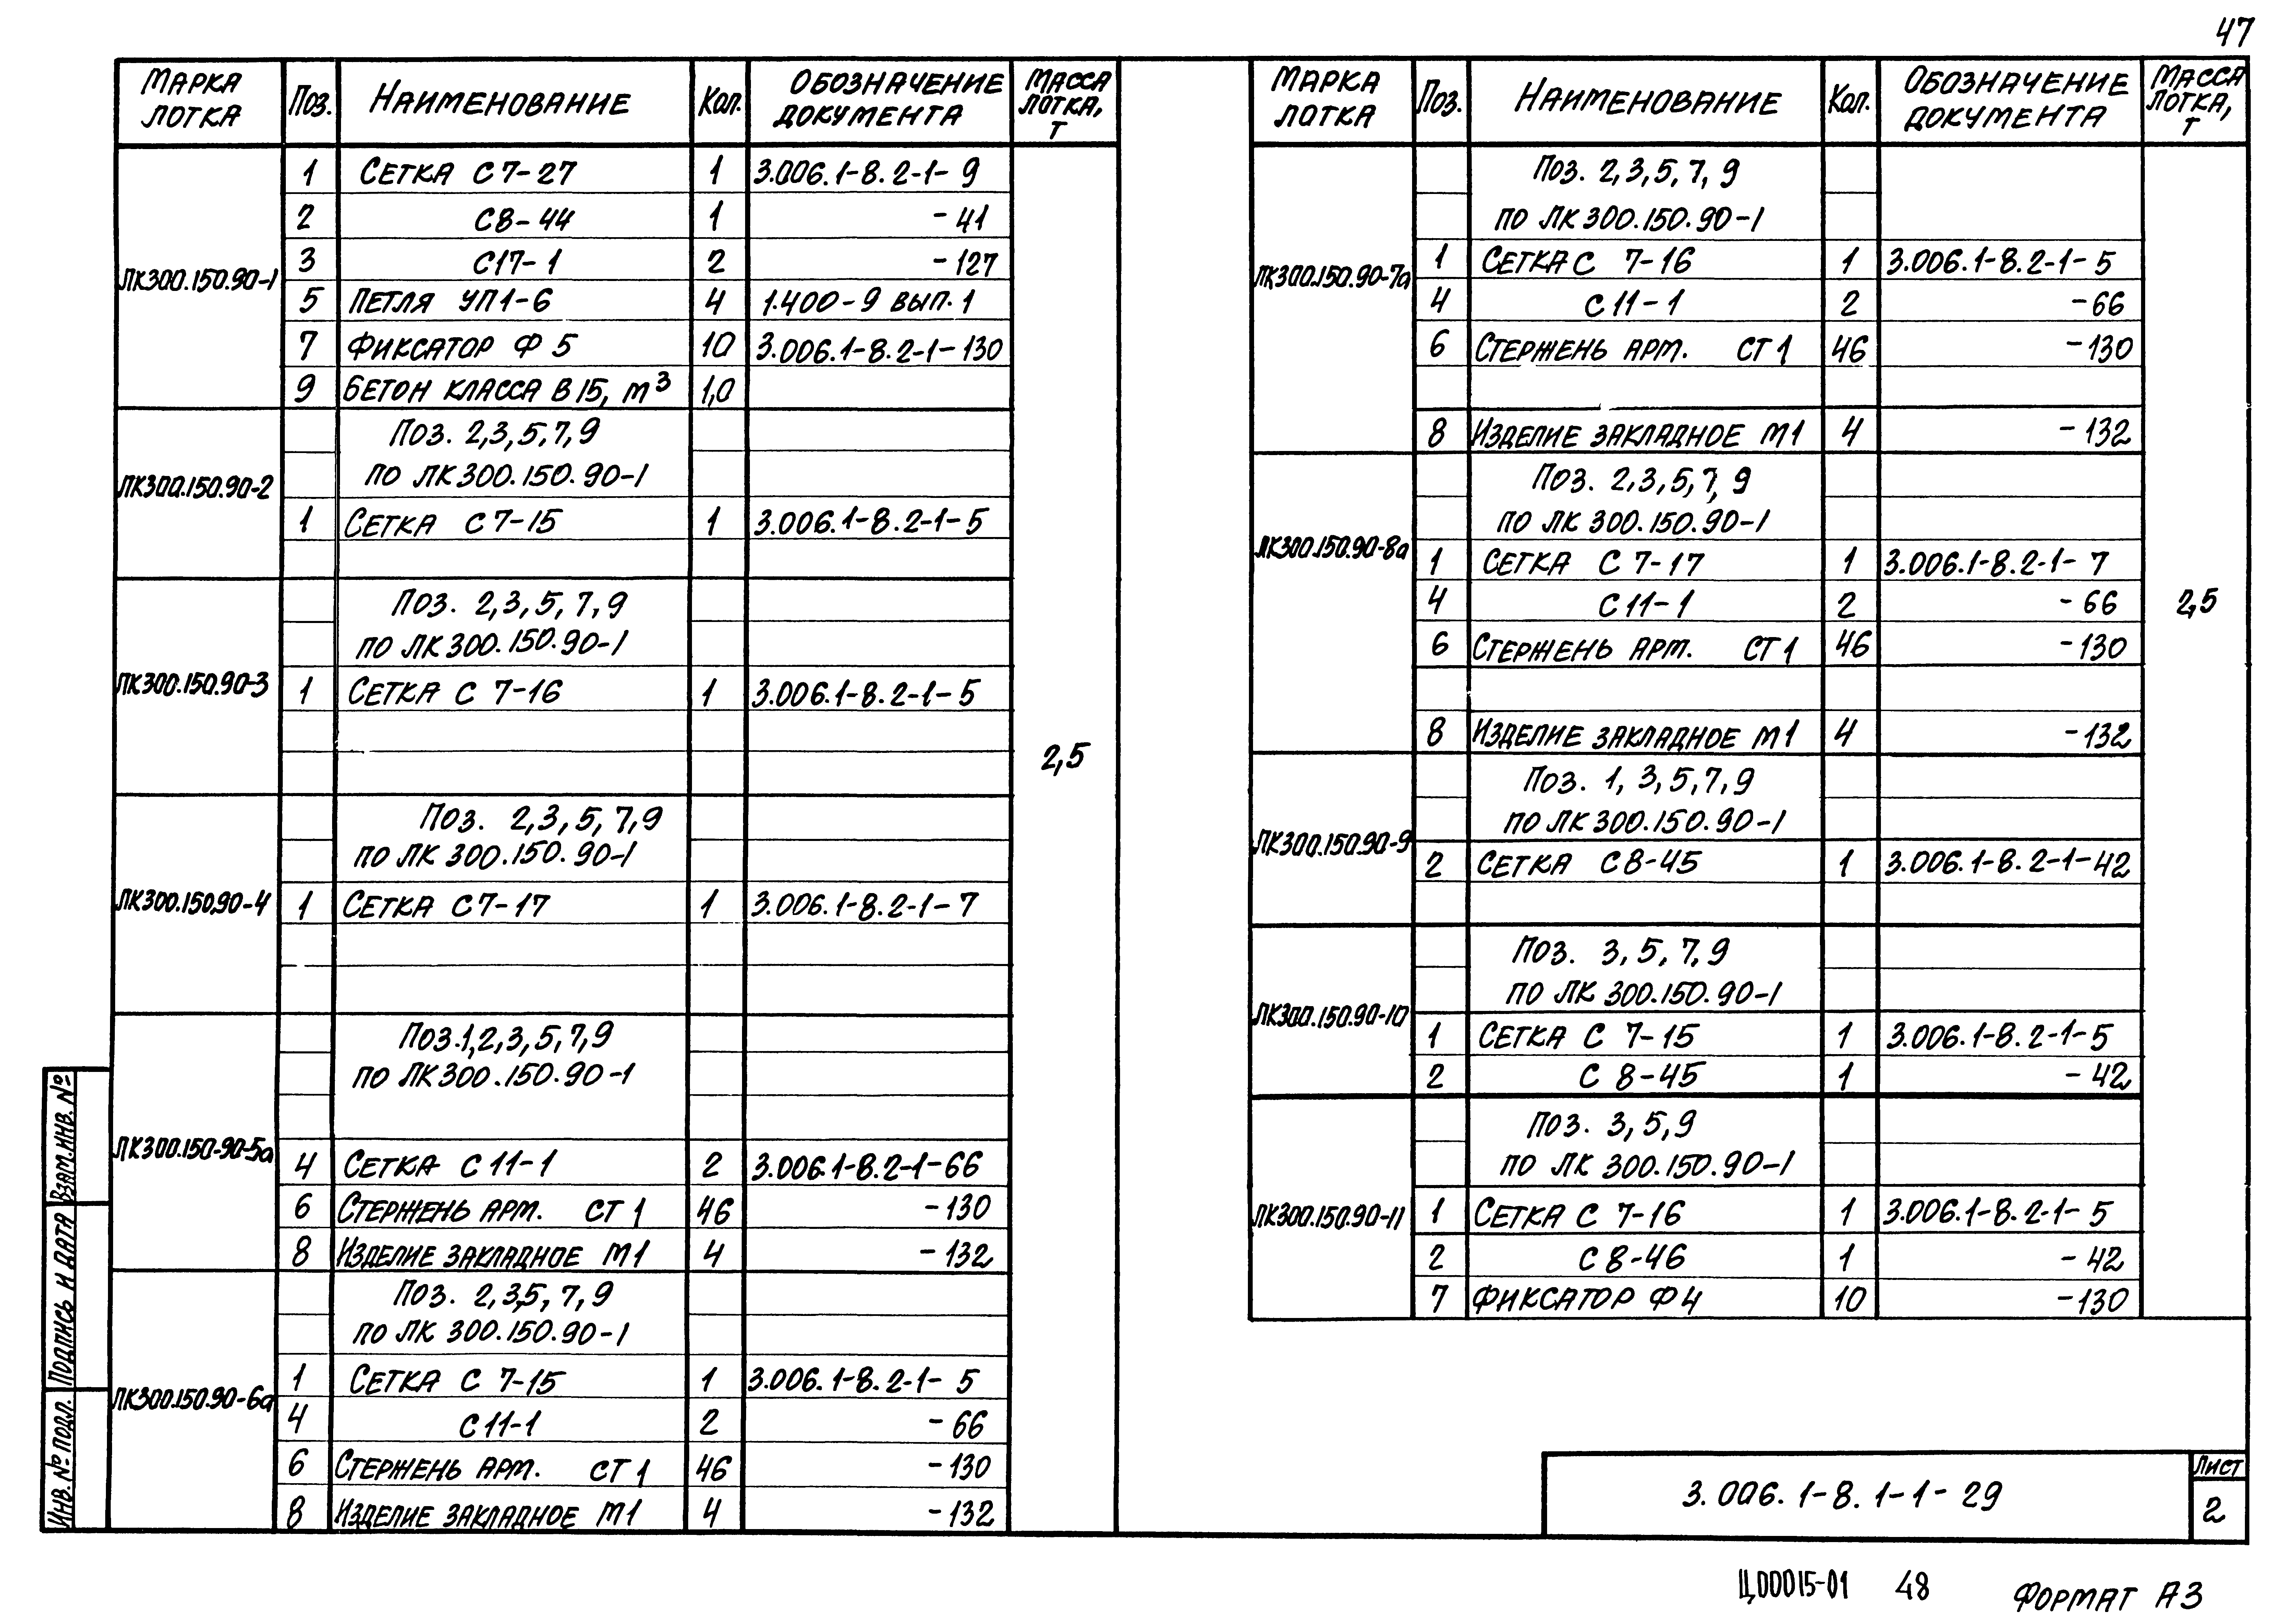 47
МАРКА ЛОТКА Поз. НАИМЕНОВАНИЕ Кол. ОБОЗНАЧЕНИЕ ДОКУМЕНТА МАССА ЛОТКА, Т
ЛК300.150.90-1
1 СЕТКА С7-27 1 3.006.1-8.2-1-9
2 С8-44 1 -41
3 С17-1 2 -127
5 ПЕТЛЯ УП1-6 4 1.400-9 ВЫП.1
7 ФИКСАТОР Ф5 10 3.006.1-8.2-1-130
9 БЕТОН КЛАССА В15, м³ 1,0
ЛК300.150.90-2
Поз. 2,3,5,7,9
по ЛК300.150.90-1
1 СЕТКА С7-15 1 3.006.1-8.2-1-5
ЛК300.150.90-3
Поз. 2,3,5,7,9
по ЛК300.150.90-1
1 СЕТКА С 7-16 1 3.006.1-8.2-1-5
2,5
ЛК300.150.90-4
Поз. 2,3,5,7,9
по ЛК 300.150.90-1
1 СЕТКА С7-17 1 3.006.1-8.2-1-7
ЛК300.150-90-5а
Поз.1,2,3,5,7,9
по ЛК300.150.90-1
4 СЕТКА С11-1 2 3.006.1-8.2-1-66
6 СТЕРЖЕНЬ АРМ. СТ1 46 -130
8 ИЗДЕЛИЕ ЗАКЛАДНОЕ М1 4 -132
ЛК300.150.90-6а
Поз. 2,3,5,7,9
по ЛК 300.150.90-1
1 СЕТКА С 7-15 1 3.006.1-8.2-1-5
4 С11-1 2 -66
6 СТЕРЖЕНЬ АРМ. СТ1 46 -130
8 ИЗДЕЛИЕ ЗАКЛАДНОЕ М1 4 -132
МАРКА ЛОТКА Поз. НАИМЕНОВАНИЕ Кол. ОБОЗНАЧЕНИЕ ДОКУМЕНТА МАССА ЛОТКА, Т
ЛК300.150.90-7а
Поз. 2,3,5,7,9
по ЛК300.150.90-1
1 СЕТКА С 7-16 1 3.006.1-8.2-1-5
4 С11-1 2 -66
6 СТЕРЖЕНЬ АРМ. СТ1 46 -130
8 ИЗДЕЛИЕ ЗАКЛАДНОЕ М1 4 -132
ЛК300.150.90-8а
Поз. 2,3,5,7,9
по ЛК 300.150.90-1
1 СЕТКА С 7-17 1 3.006.1-8.2-1-7
4 С11-1 2 -66
2,5
6 СТЕРЖЕНЬ АРМ. СТ1 46 -130
8 ИЗДЕЛИЕ ЗАКЛАДНОЕ М1 4 -132
ЛК300.150.90-9
Поз. 1,3,5,7,9
по ЛК300.150.90-1
2 СЕТКА С8-45 1 3.006.1-8.2-1-42
ЛК300.150.90-10
Поз. 3,5,7,9
по ЛК 300.150.90-1
1 СЕТКА С 7-15 1 3.006.1-8.2-1-5
2 С 8-45 1 -42
ЛК300.150.90-11
Поз. 3,5,9
по ЛК 300.150.90-1
1 СЕТКА С 7-16 1 3.006.1-8.2-1-5
2 С8-46 1 -42
7 ФИКСАТОР Ф4 10 -130
ВЗАМ.ИНВ. №
ПОДПИСЬ И ДАТА
ИНВ. № ПОДЛ.
3.006.1-8.1-1-29
ЛИСТ
2
Ц00015-01 48 ФОРМАТ А3